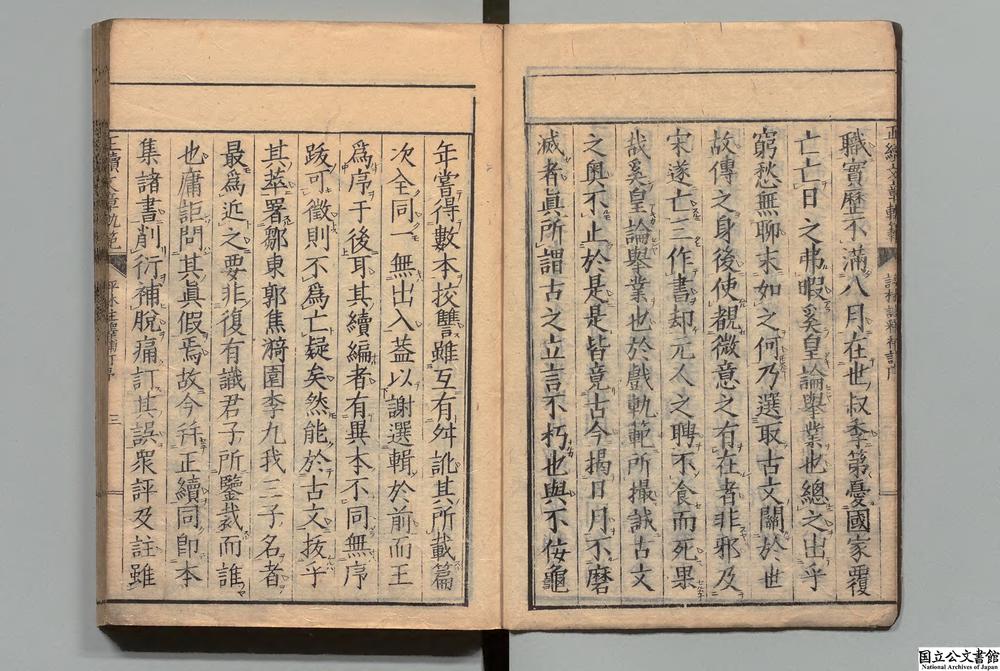 職實歷不滿八月在世叔季第憂國家覆
亡亡日之弗暇奚皇論舉業也總之出乎
窮愁無聊末如之何乃選取古文關於世
故傳之身後使覩微意之有在者非邪及
宋遂亡三作書却元人之聘不食而死果
哉奚皇論舉業也於戲軌範所撮誠古文
之奥不止於是是皆竟古今揭日月不磨
滅者眞所謂古之立言不朽也與不佞龜
年嘗得數本挍讐雖互有舛訛其所載篇
次全同一無出入葢以謝選輯於前而王
爲序于後耳其續編者有異本不同無序
跋可徵則不爲亡疑矣然能於古文拔乎
其萃署鄒東郭焦漪園李九我三子名者
最爲近之要非復有識君子所鑒裁而誰
也庸詎問其眞假焉故今幷正續同卽本
集諸書削衍補脫痛訂其誤衆評及註雖
正續文章軌範
三
国立公文書館
National Archives of Japan